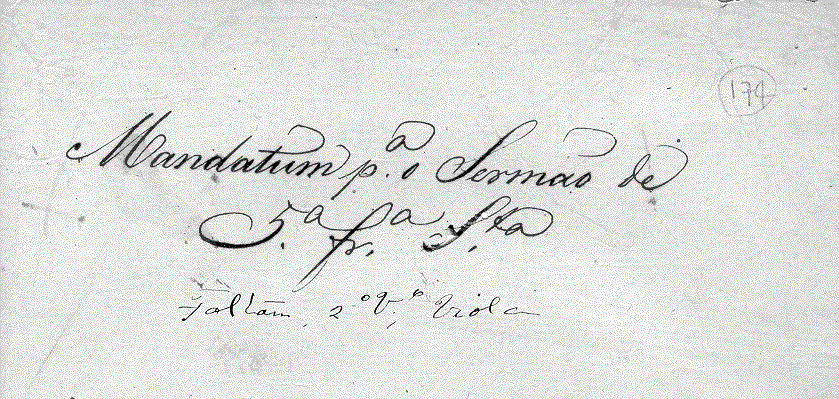 174
Mandatum p.ª o Sermão de
5.ª fr.ª S.ta
Faltam, 2º V.º Viola